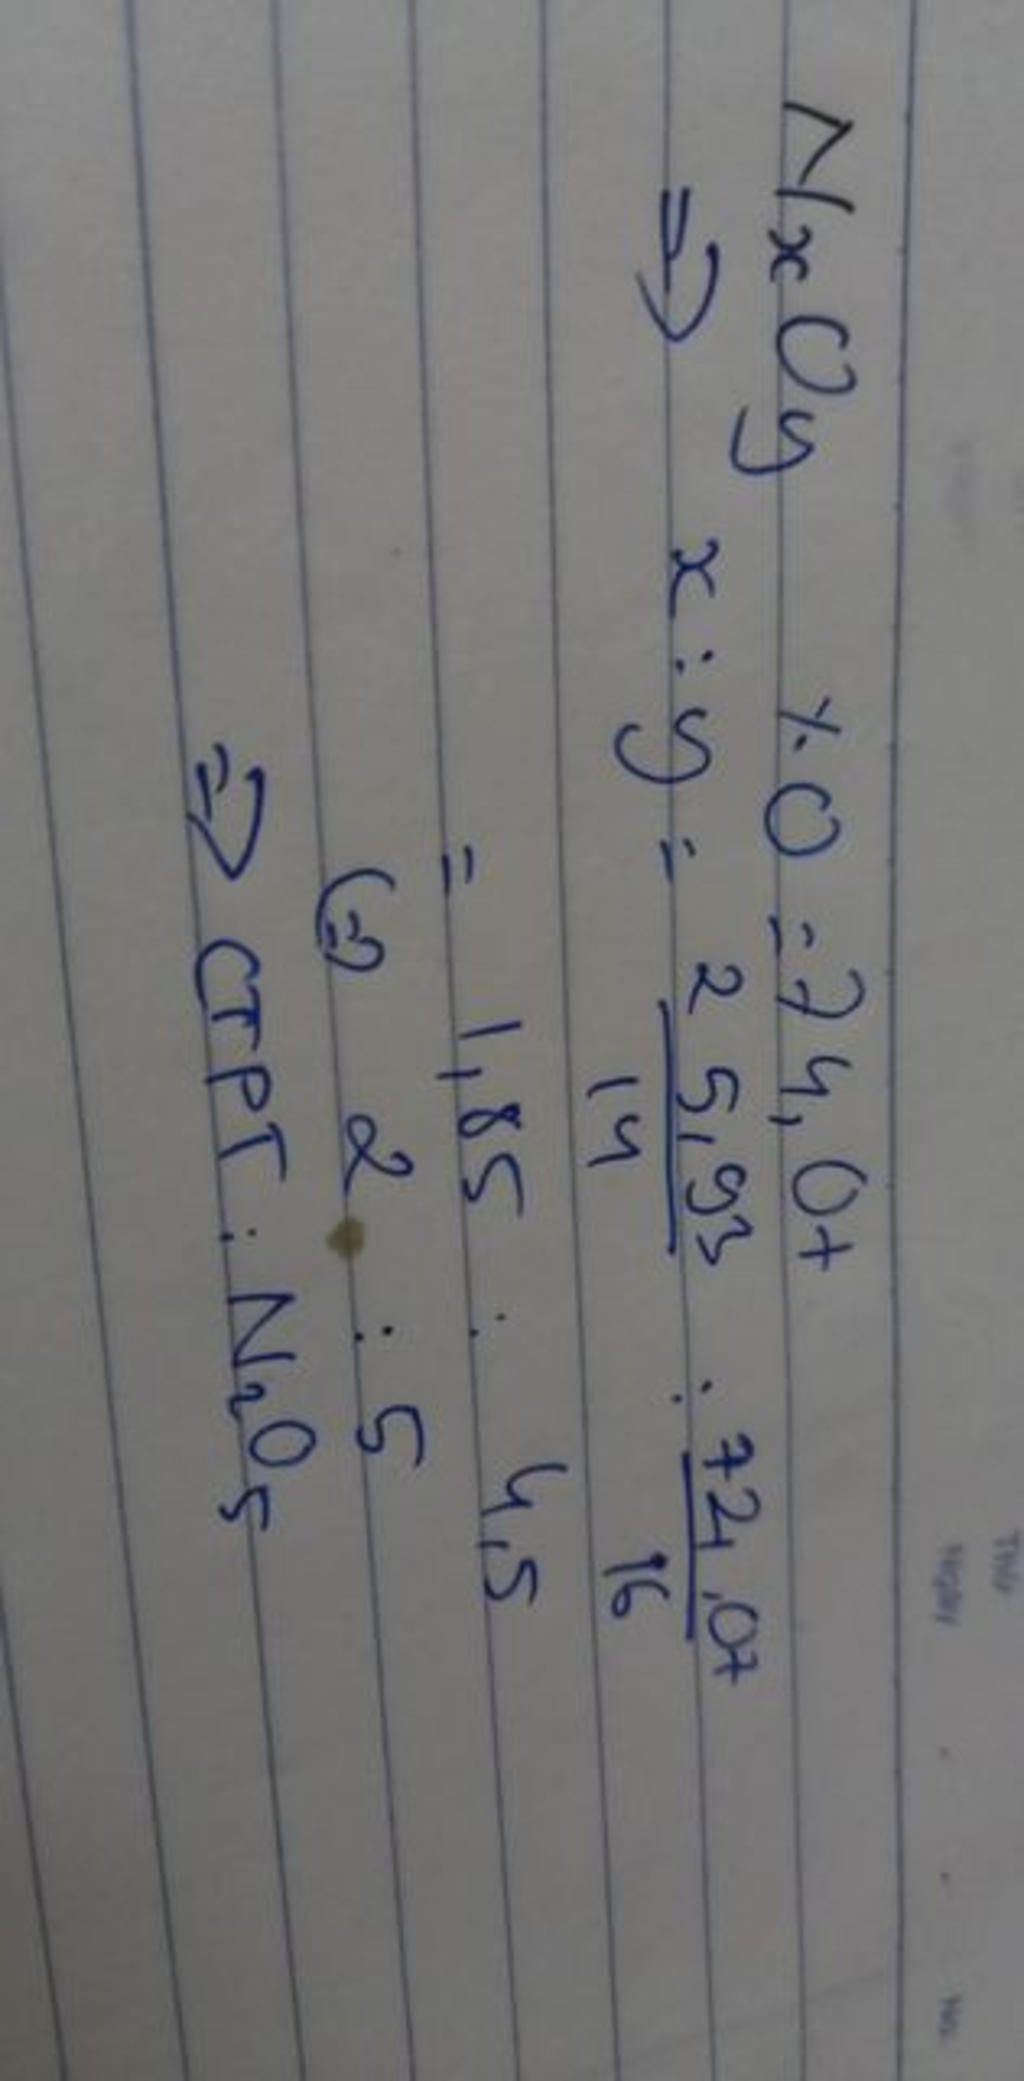 NxOy %O = 74,07
=> x : y = 25,93/14 : 74,07/16
= 1,85 : 4,5
(=) 2 : 5
=> CTPT : N2O5